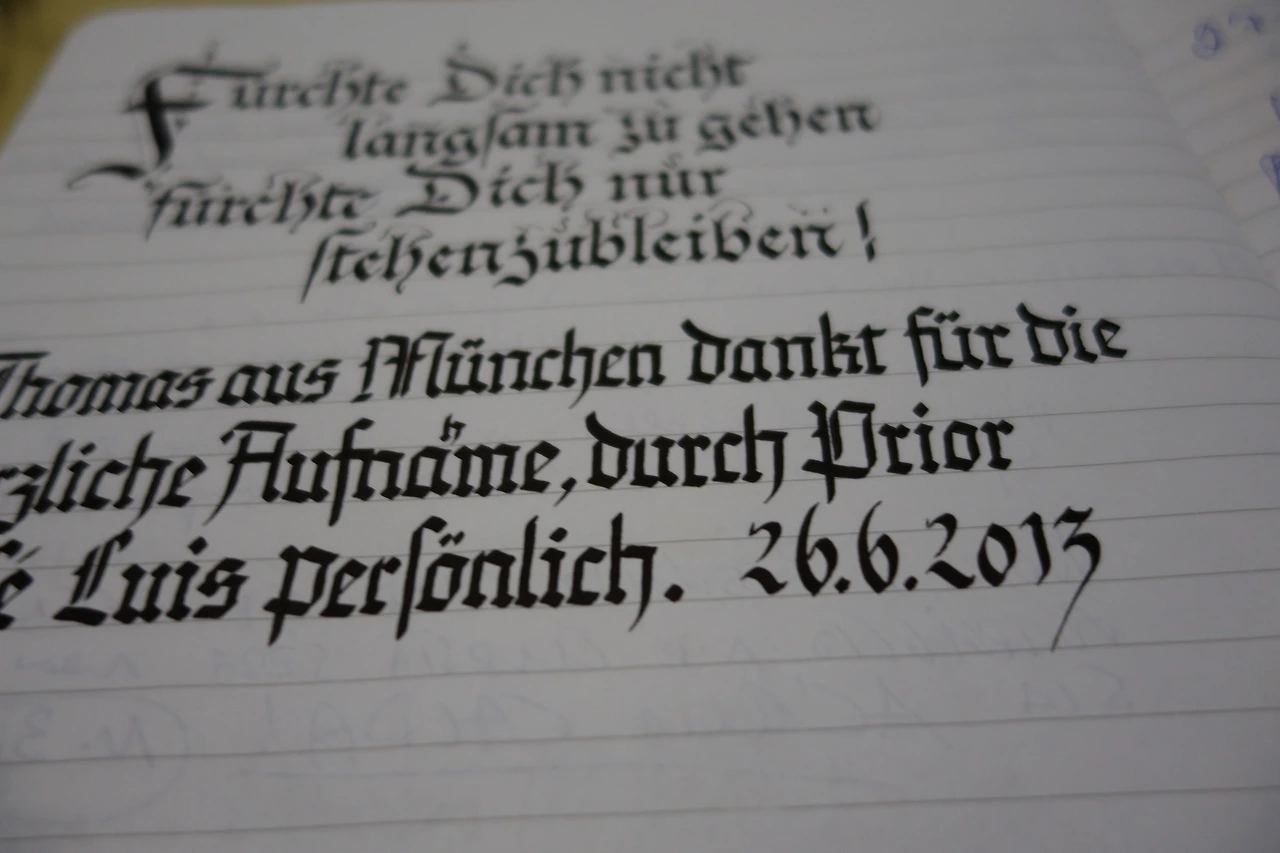 Fürchte Dich nicht
langſam zu gehen
fürchte Dich nur
ſtehenzubleiben!
Thomas aus München dankt für die
rzliche Aufnäme, durch Prior
é Luis perſönlich. 26.6.2013